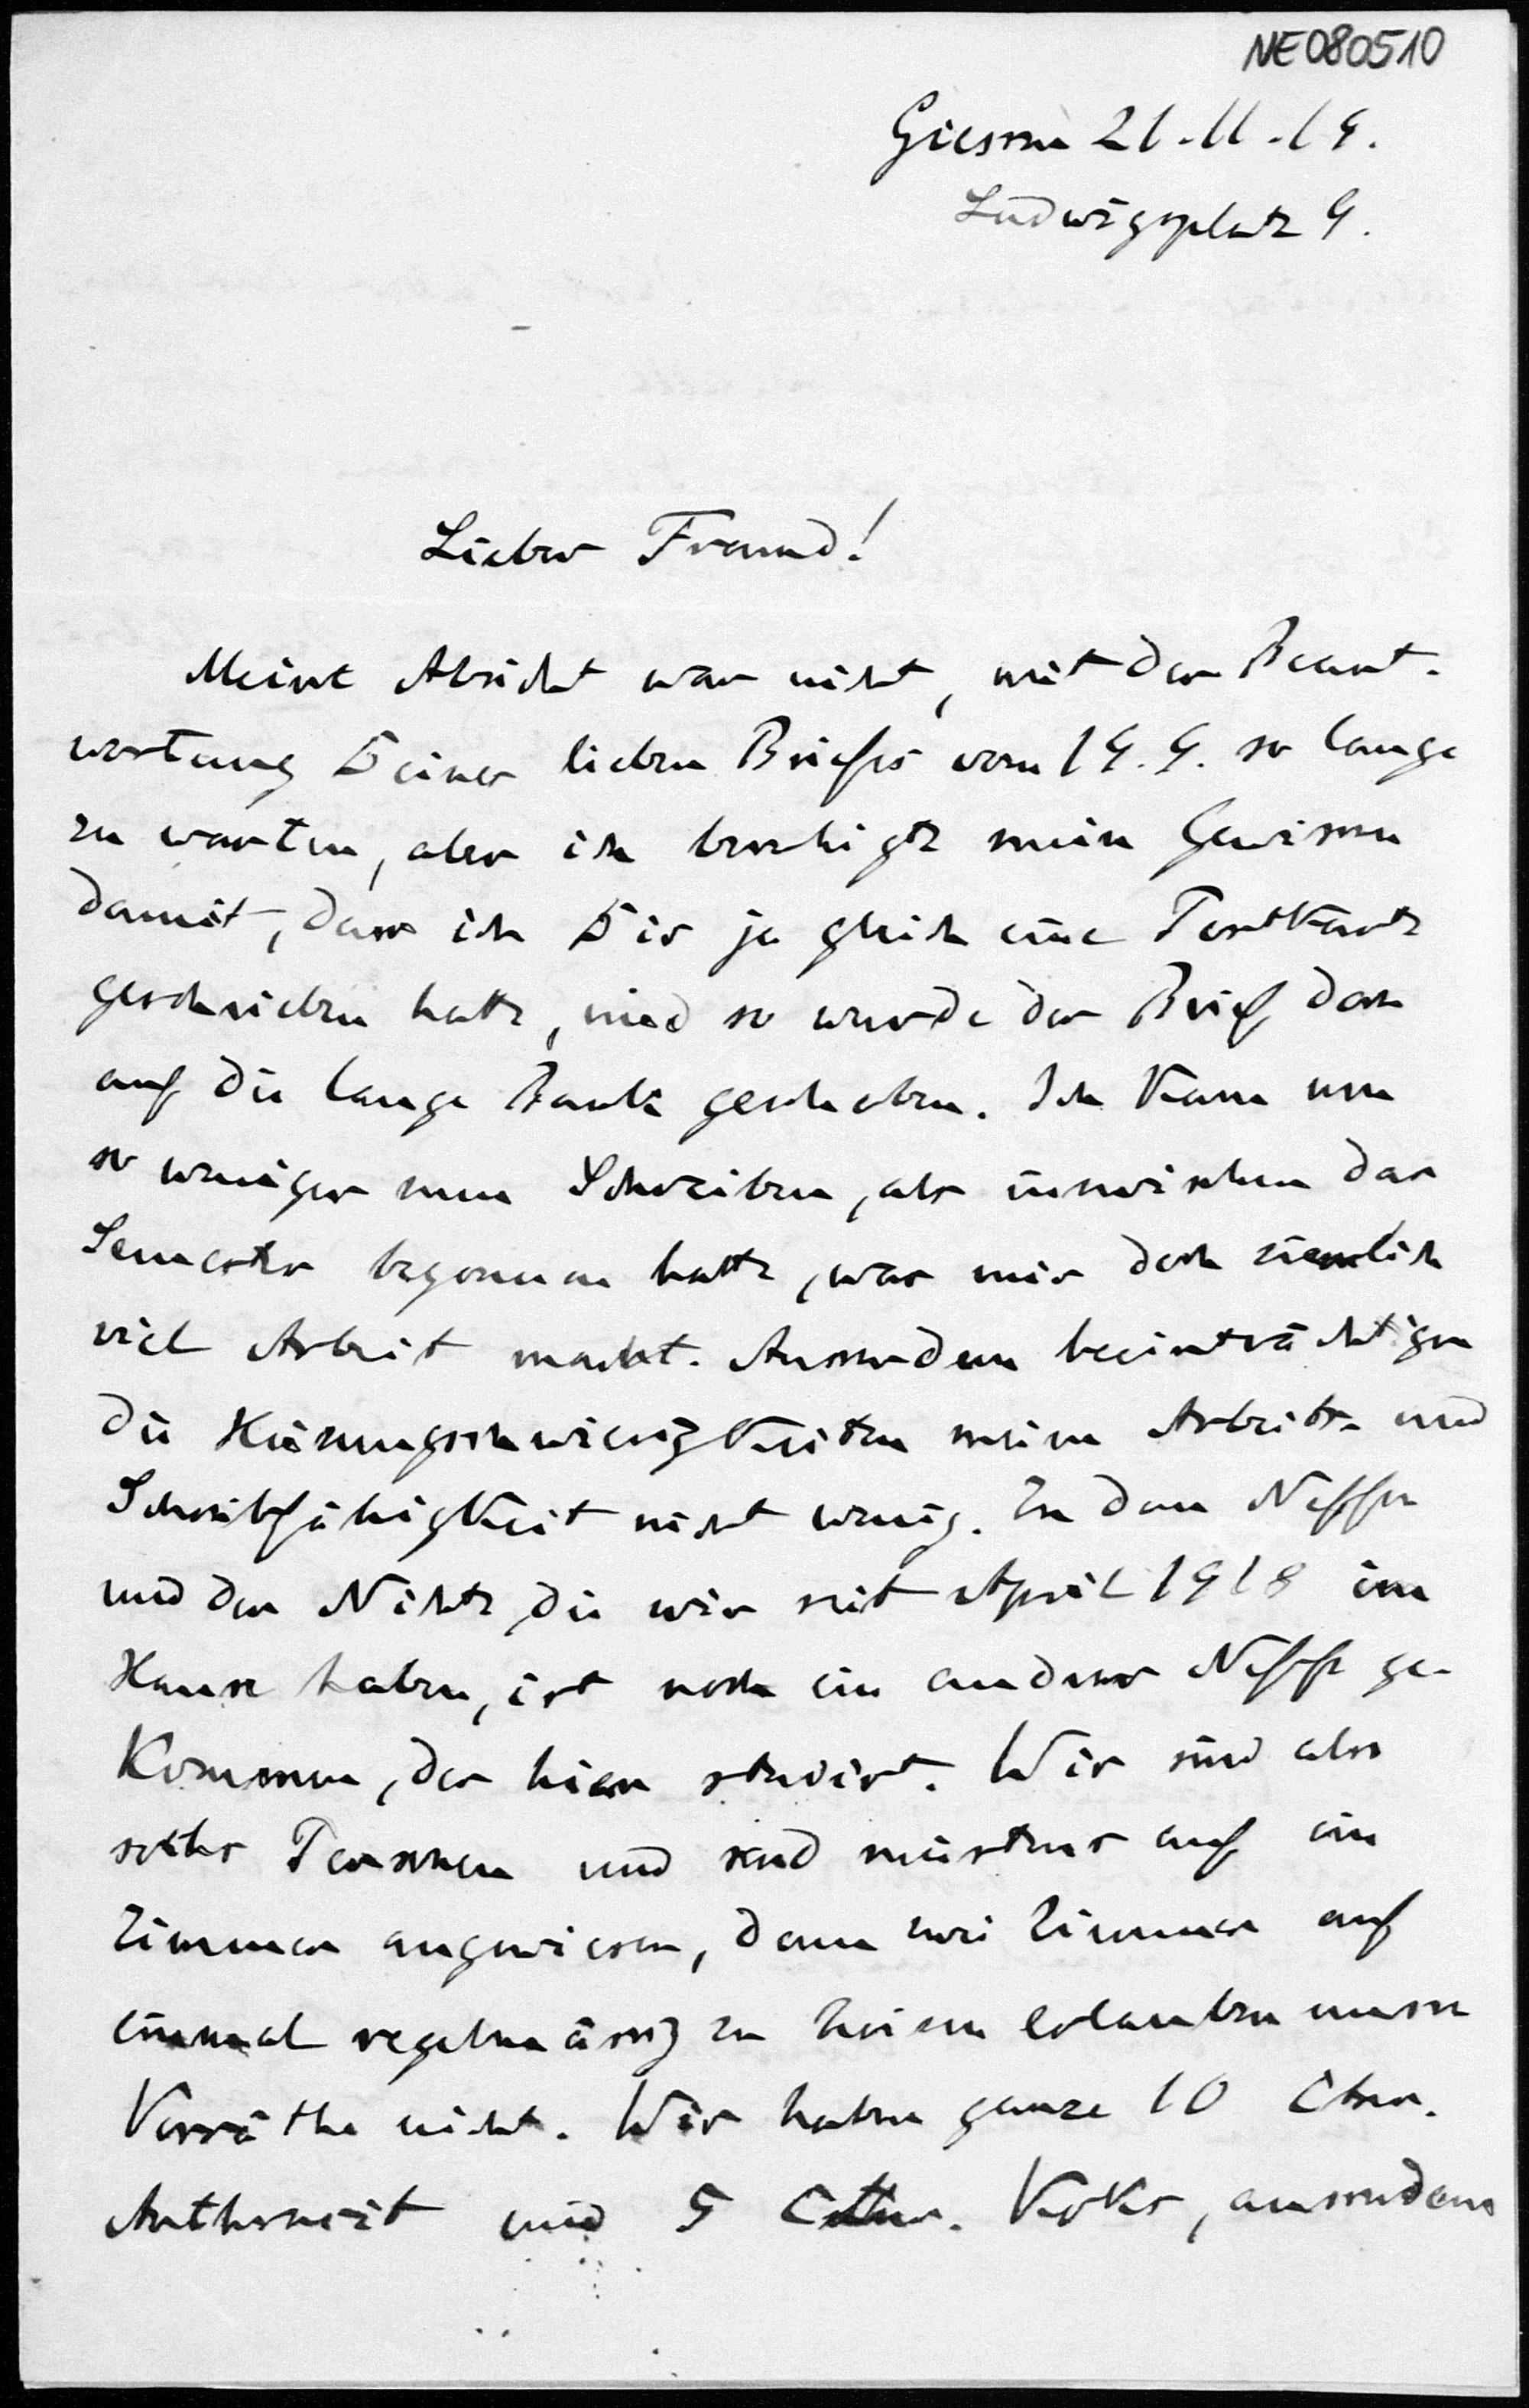 NE080510
Giessen 21.11.19.
Ludwigsplatz 9.
Lieber Freund!
Meine Absicht war nicht, mit der Beant-
wortung Deines lieben Briefes vom 19.9. so lange
zu warten, aber ich beruhigte mein Gewissen
damit, dass ich Dir ja gleich eine Postkarte
geschrieben hatte, und so wurde der Brief doch
auf die lange Bank geschoben. Ich kam um
so weniger zum Schreiben, als inzwischen das
Semester begonnen hatte, was mir doch ziemlich
viel Arbeit macht. Ausserdem beeinträchtigen
die Heizungsschwierigkeiten meine Arbeits- und
Schreibfähigkeit nicht wenig. Zu dem Neffen
und der Nichte, die wir seit April 1918 im
Hause haben, ist noch ein anderer Neffe ge-
kommen, der hier studirt. Wir sind also
sechs Personen und sind meistens auf ein
Zimmer angewiesen, denn zwei Zimmer auf
einmal regelmässig zu heizen erlauben unsere
Vorräthe nicht. Wir haben ganze 10 Ctnr.
Anthrazit und 5 Ctnr. Koks, ausserdem